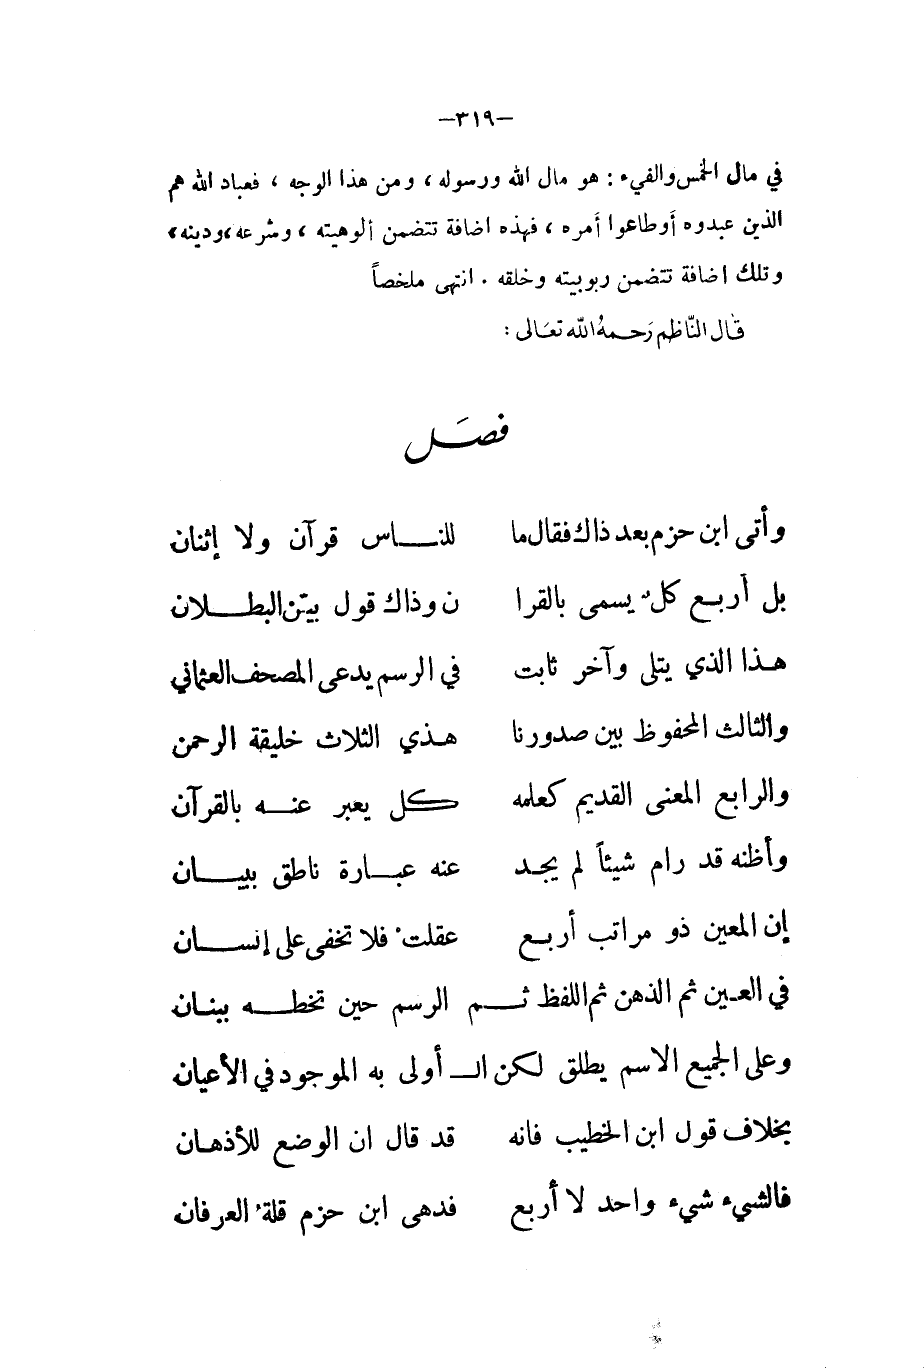 -٣١٩-
في مال الخمس والفيء : هو مال الله ورسوله ، ومن هذا الوجه ، فعباد الله هم
الذين عبدوه أوطاعوا أمره ، فهذه اضافة تتضمن ألوهيته ، وشرعه ،ودينه ،
وتلك اضافة تتضمن ربوبيته وخلقه . انتهى ملخصاً
قال النّاظم رَحمهُ الله تعَالى :
فصَل
وأتى ابن حزم بعد ذاك فقال ما للناس قرآن ولا إثنان
بل أربع كلٌ يسمى بالقرا ن وذاك قول بيّن البطلان
هذا الذي يتلى وآخر ثابت في الرسم يدعى المصحف العثماني
والثالث المحفوظ بين صدورنا هذي الثلاث خليقة الرحمن
والرابع المعنى القديم كعلمه كل يعبر عنه بالقرآن
وأظنه قد رام شيئاً لم يجد عنه عبارة ناطق ببيان
إن المعين ذو مراتب أربع عقلت فلا تخفى على إنسان
في العين ثم الذهن ثم اللفظ ثم الرسم حين تخطه ببنان
وعلى الجميع الاسم يطلق لكن الـ أولى به الموجود في الأعيان
بخلاف قول ابن الخطيب فانه قد قال ان الوضع للأذهان
فالشيء شيء واحد لا أربع فدهى ابن حزم قلةُ العرفان